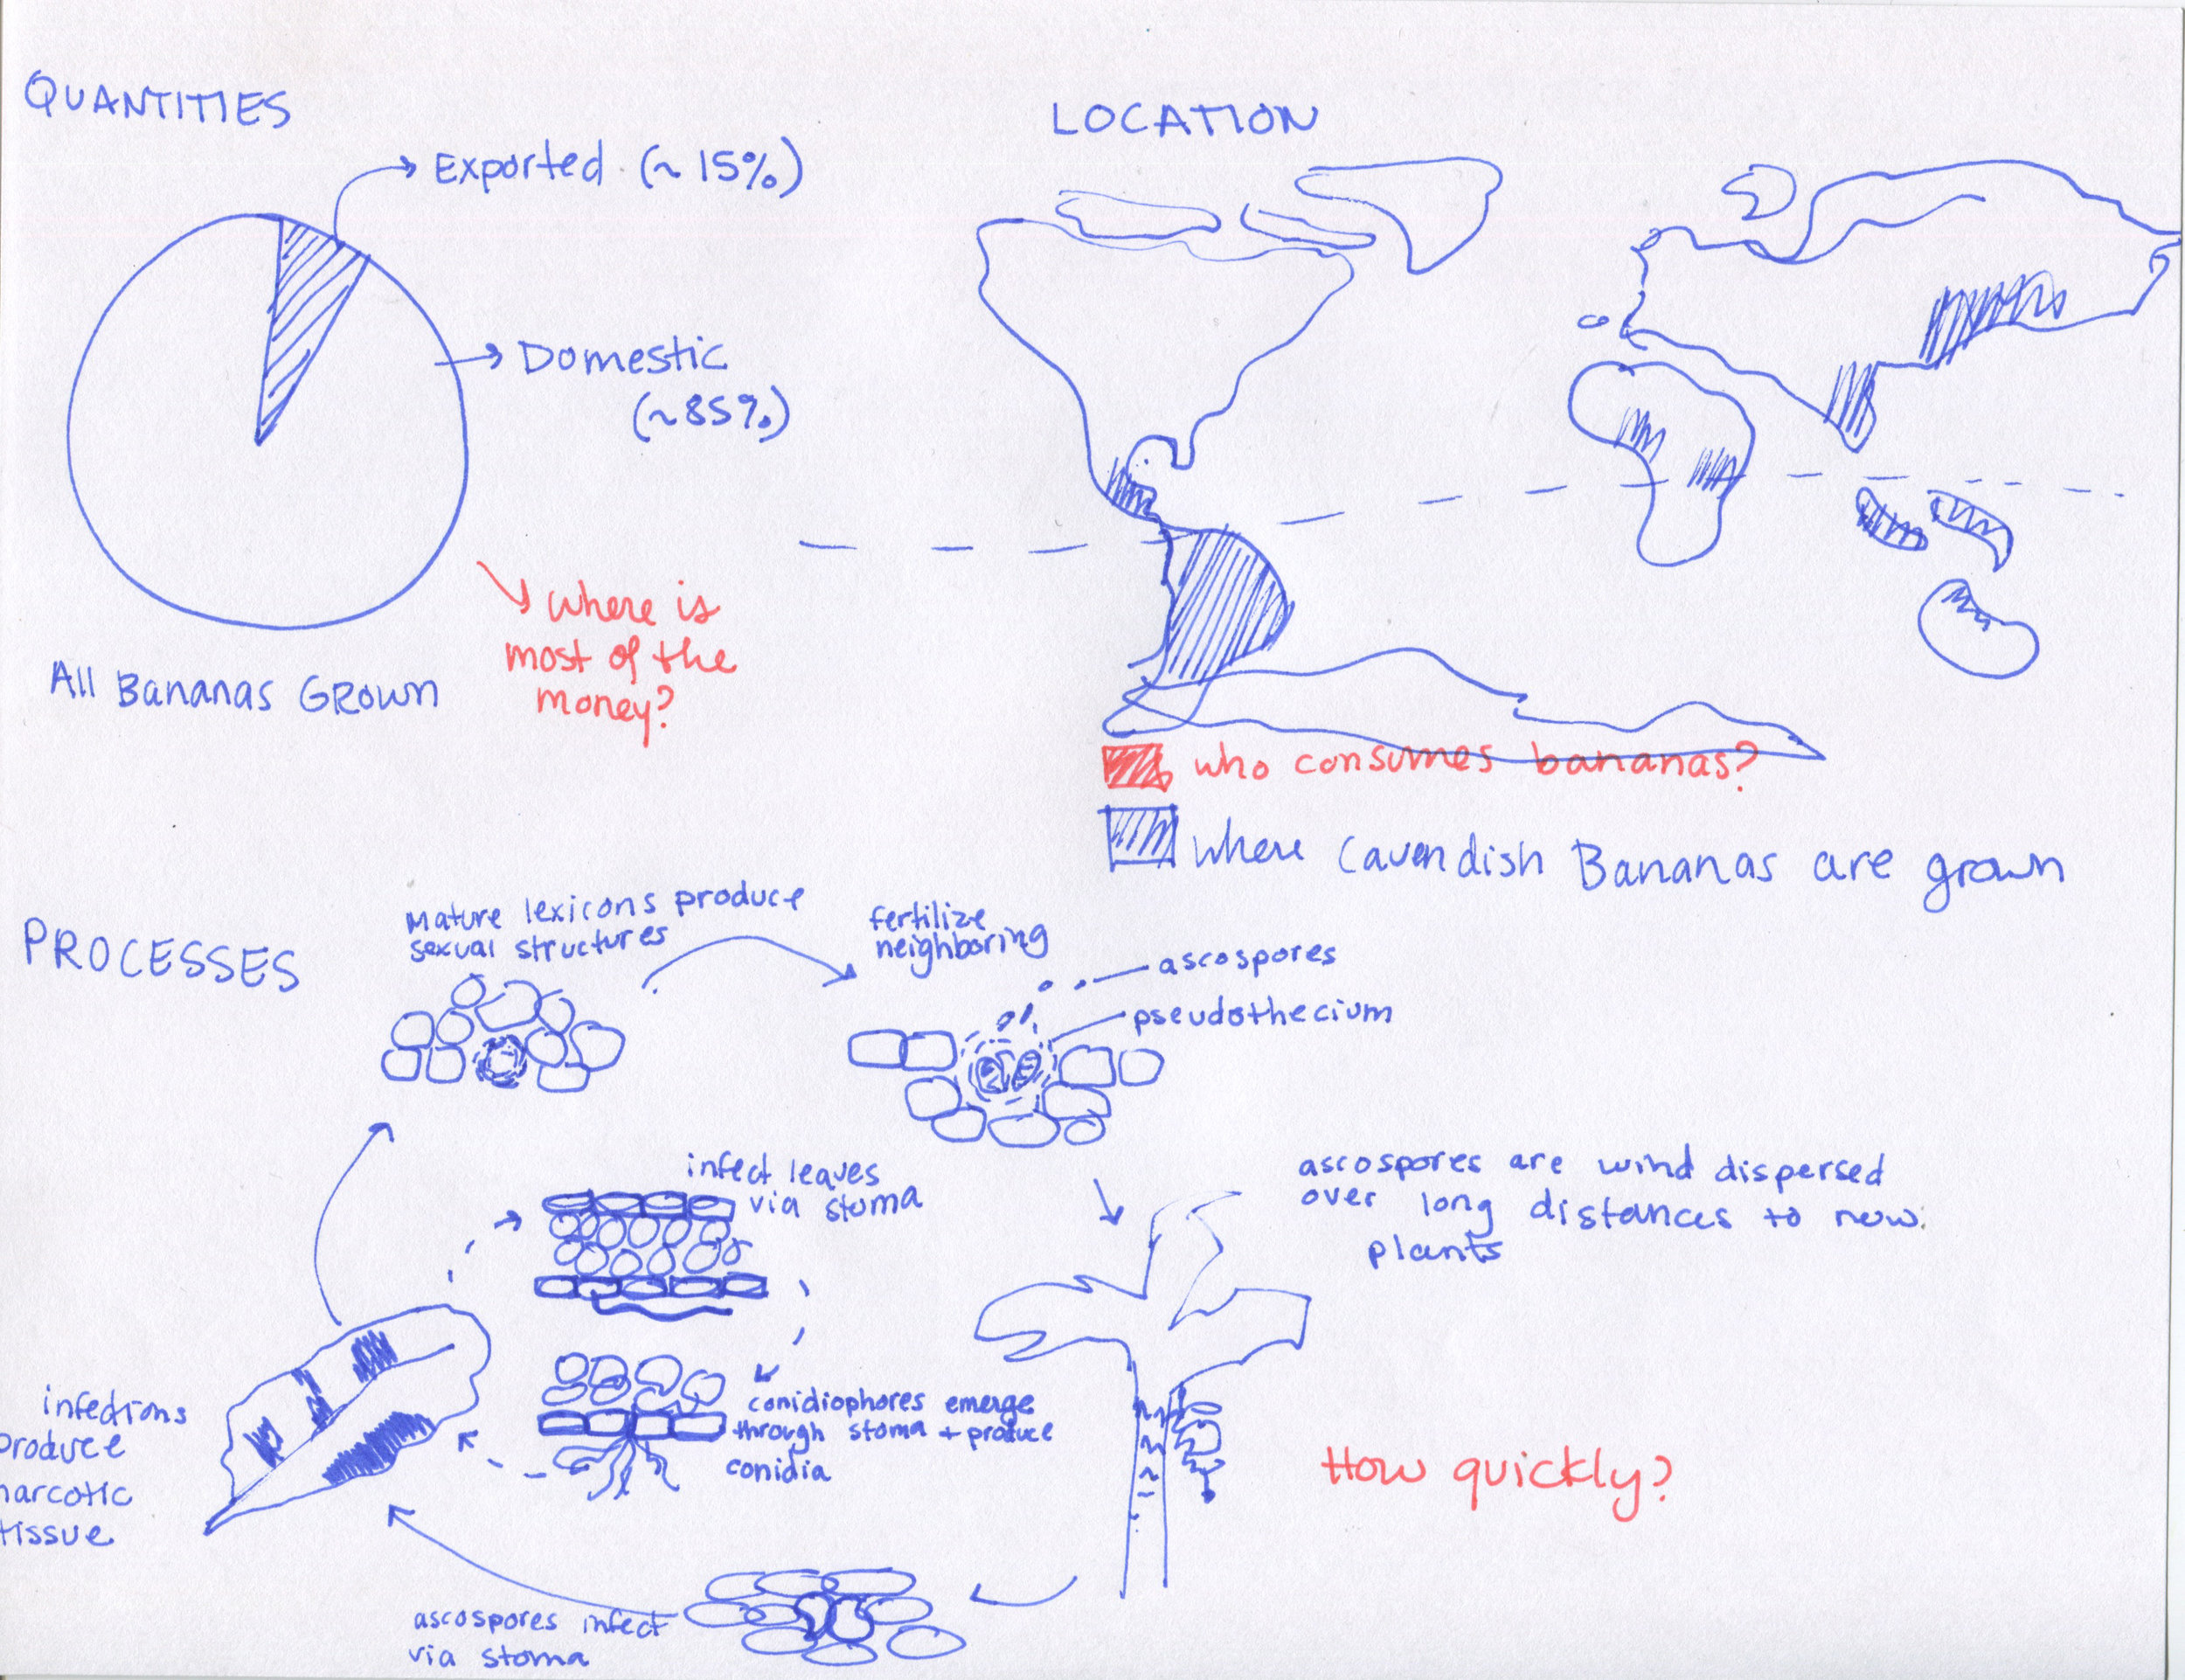 QUANTITIES
Exported (~ 15%)
Domestic
(~85%)
where is
most of the
money?
All Bananas GROWN
LOCATION
who consumes bananas?
where Cavendish Bananas are grown
PROCESSES
Mature lexicons produce
sexual structures
fertilize
neighboring
ascospores
pseudothecium
infect leaves
via stoma
ascospores are wind dispersed
over long distances to new
plants
conidiophores emerge
through stoma + produce
conidia
infections
produce
narcotic
tissue
How quickly?
ascospores infect
via stoma